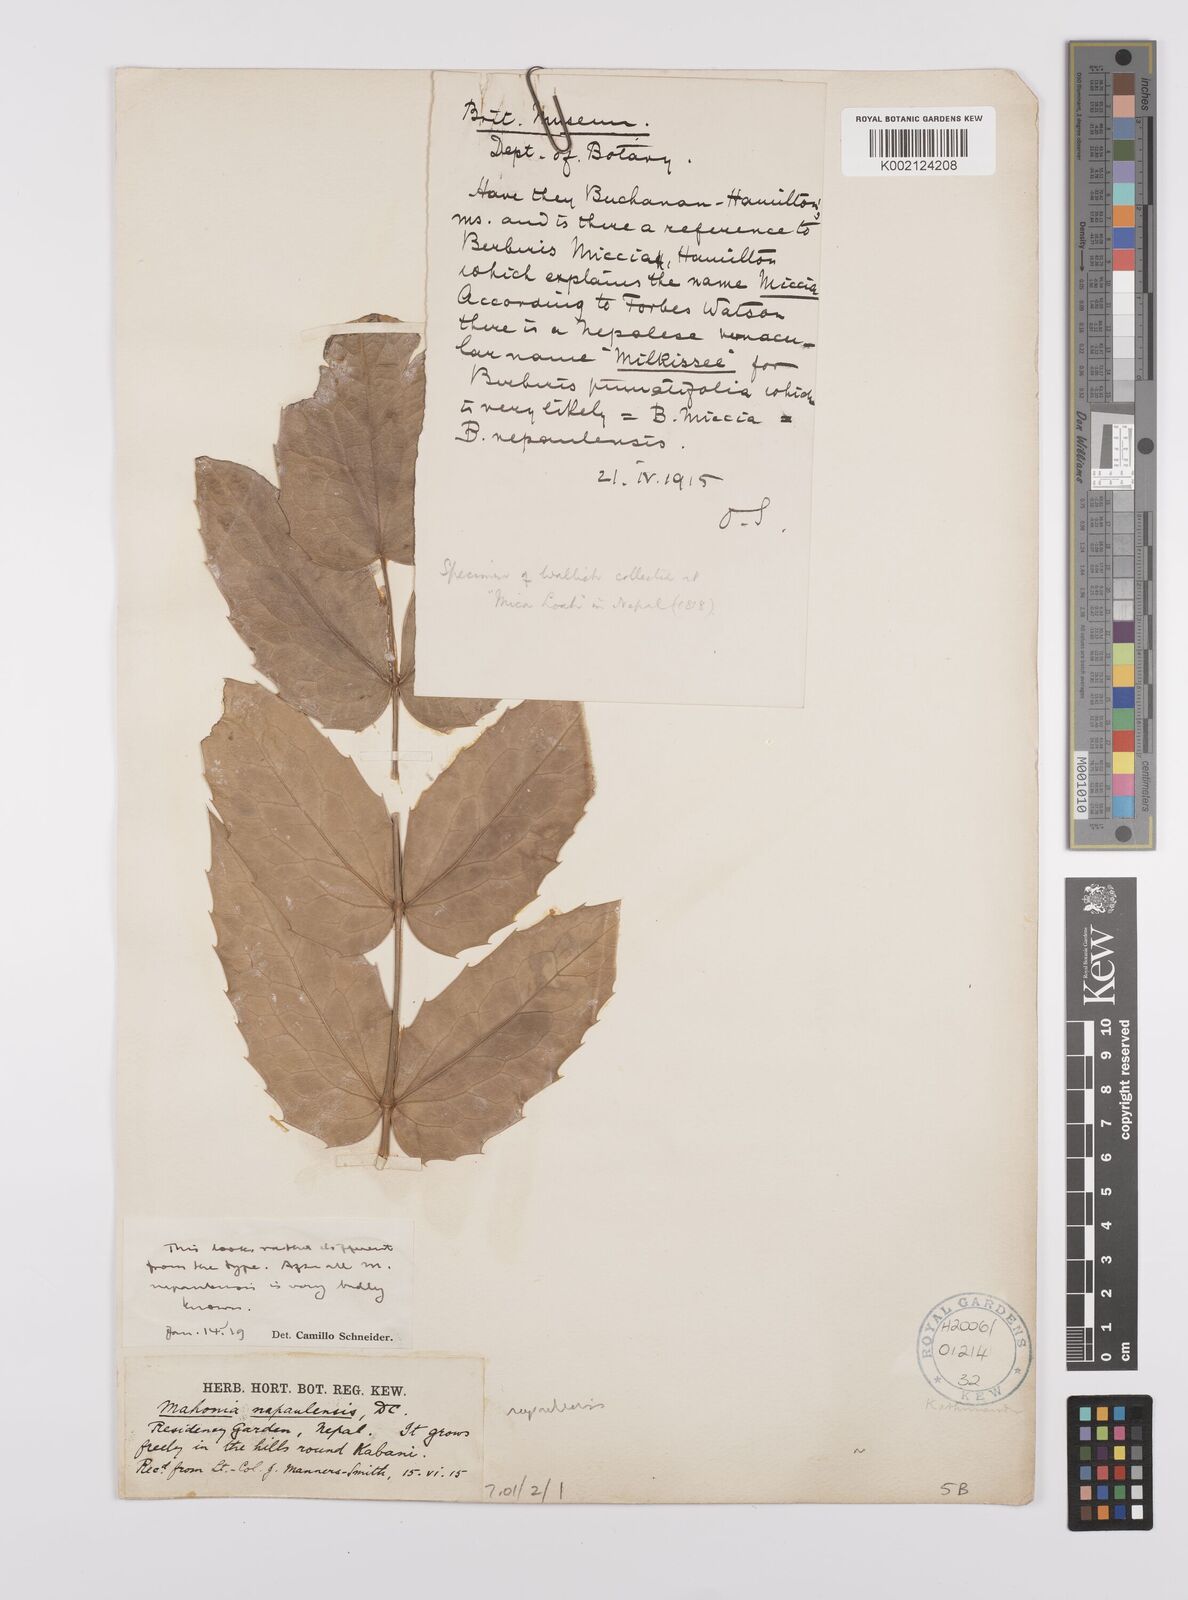 Brit. Museum.
Dept. of Botany.
Have they Buchanan-Hamilton's
ms. and is there a reference to
Berberis Miccia, Hamilton
which explains the name Miccia
According to Forbes Watson
there is a Nepalese vernacu-
lar name "Milkissee" for
Berberis pinnatifolia which
is very likely = B. Miccia =
B. nepaulensis.
21. IV. 1915
O.S.
Specimen of Wallich collected at
"Mica" in Nepal (1818)
ROYAL BOTANIC GARDENS KEW
K002124208
This looks rather different
from the type. After all M.
nepaulensis is very badly
known.
Jan. 14. 19 Det. Camillo Schneider.
HERB. HORT. BOT. REG. KEW.
Mahonia napaulensis, DC.
Residency Garden, Nepal. It grows
freely in the hills round Kabani.
Recd. from Lt.-Col. J. Manners-Smith, 15.vi.15
nepaulensis
7.01/2/1
ROYAL GARDENS
KEW
H2006/
01214
32
Kathmandu
5B
inches
centimeters
Don Williams
M001010
Kew
Royal Botanic Gardens
copyright reserved
10 9 8 7 6 5 4 3 2 1 0 cm